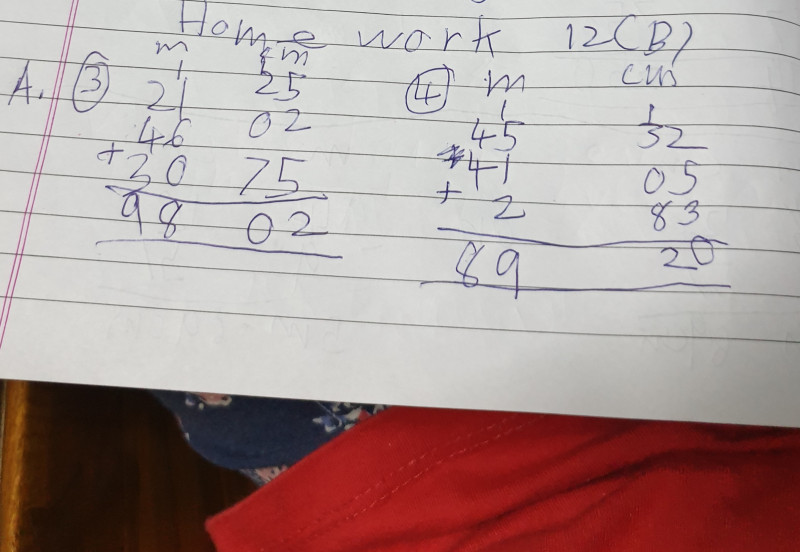 Home work 12(B)
A. ③ m cm ④ m cm
1 1 1 1
21 25 45 32
46 02 41 05
+30 75 + 2 83
98 02 89 20